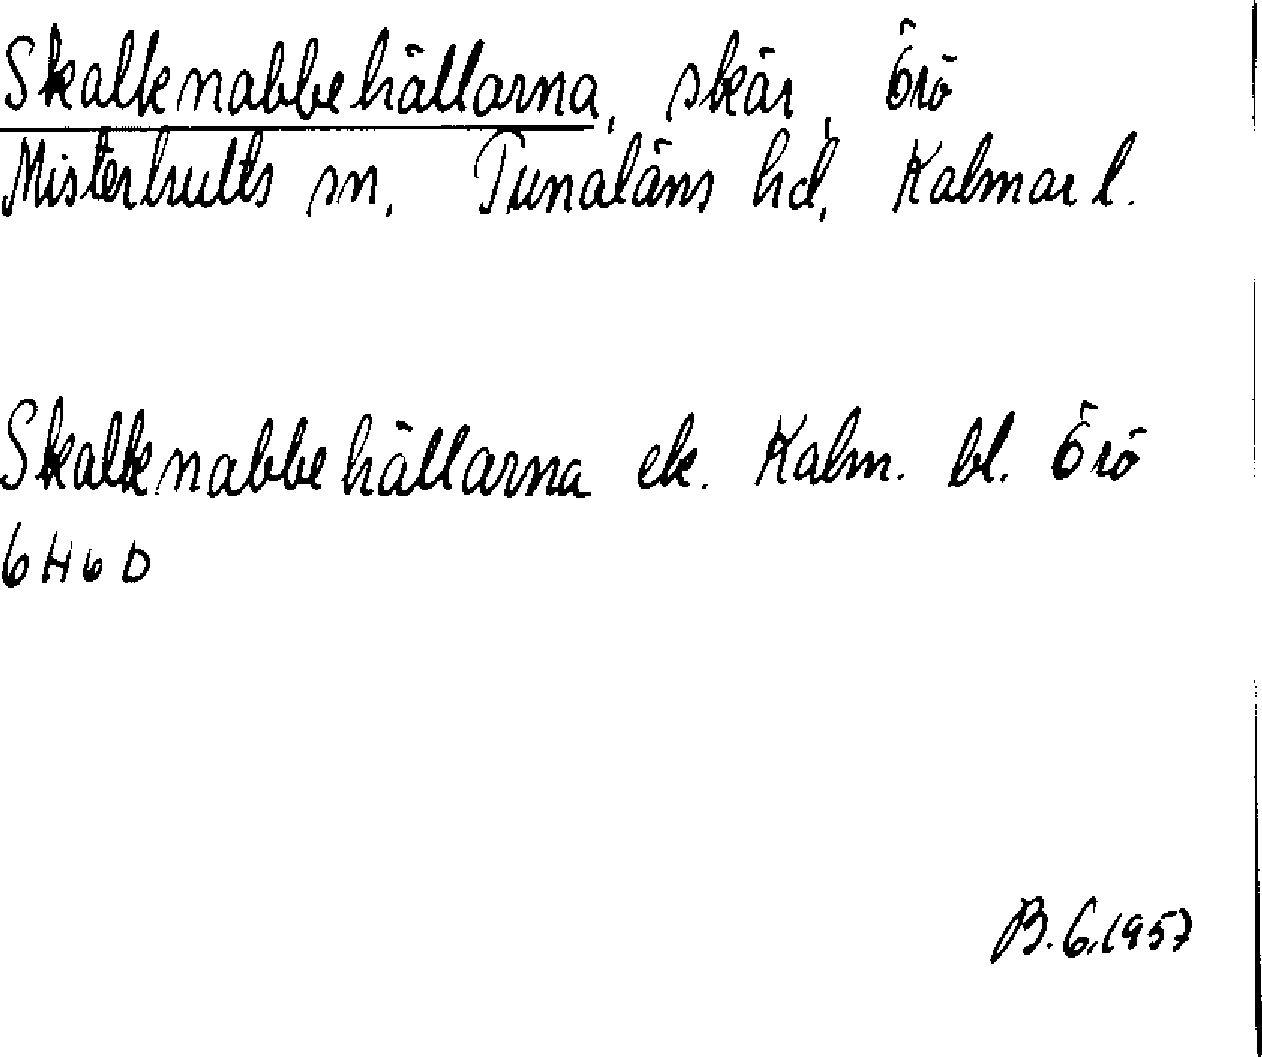 Skalknabbehällarna, skär, Örö
Misterhults sn, Tunaläns hd, Kalmar l.
Skalknabbehällarna ek. Kalm. bl. Örö
6 H 6 D
B.G.1957